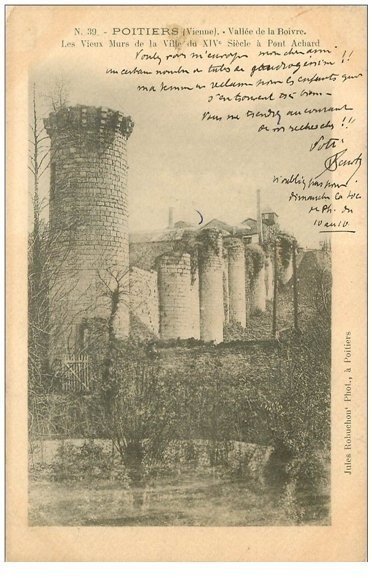 N. 39. - POITIERS (Vienne). - Vallée de la Boivre.
Les Vieux Murs de la Ville du XIVe Siècle à Pont Achard
m'envoyer mon cher ami !!
un certain nombre de tubes de
ma femme en réclame pour les enfants qui
s'en trouvent très bien
Vous me tiendrez au courant
de vos recherches !!
Votre
n'oubliez pas pour
dimanche la
de Ph. du
10 au 10
Jules Robuchon, Phot., à Poitiers